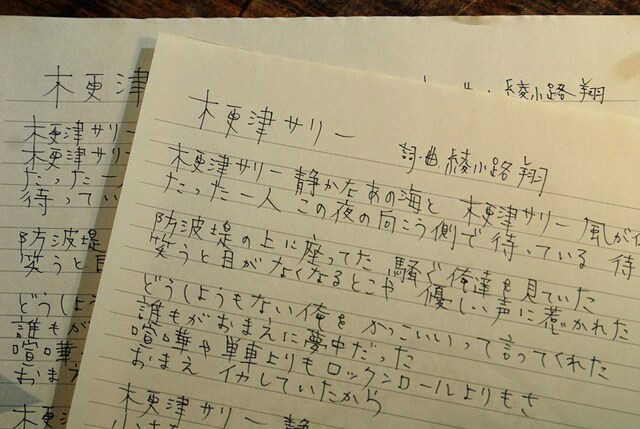 木更津
綾小路 翔
木更津サリー
木更津サリー
たった一人
待ってい
防波堤
笑うと目
どうしよう
誰もが
喧嘩
おまえ
木更津サリー
詞・曲 綾小路 翔
木更津サリー 静かなあの海と 木更津サリー 風が
たった一人 この夜の向こう側で 待っている 待
防波堤の上に座ってた 騒ぐ俺達を見ていた
笑うと目がなくなるとこや 優しい声に惹かれた
どうしようもない俺を かっこいいって言ってくれた
誰もがおまえに夢中だった
喧嘩や単車よりもロックンロールよりもさ
おまえ イヤしていたから
木更津サリー 静